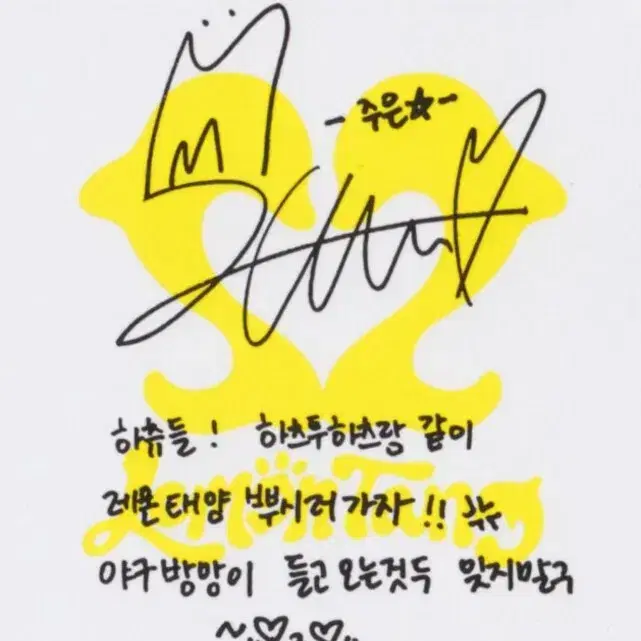 - 주은☆-
하츄들! 하츠투하츠랑 같이
레몬태양 뿌시러가자!! ㅠㅠ
야구방망이 들고오는것두 잊지말구
Lemon Tang
~♡ ♡